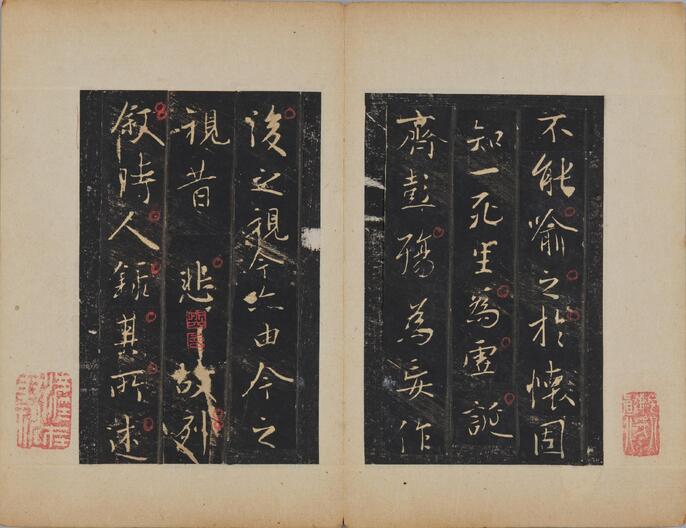 不能喻之於懷固
知一死生為虛誕
齊彭殤為妄作
後之視今亦由今之
視昔 悲 故列
敘時人錄其所述